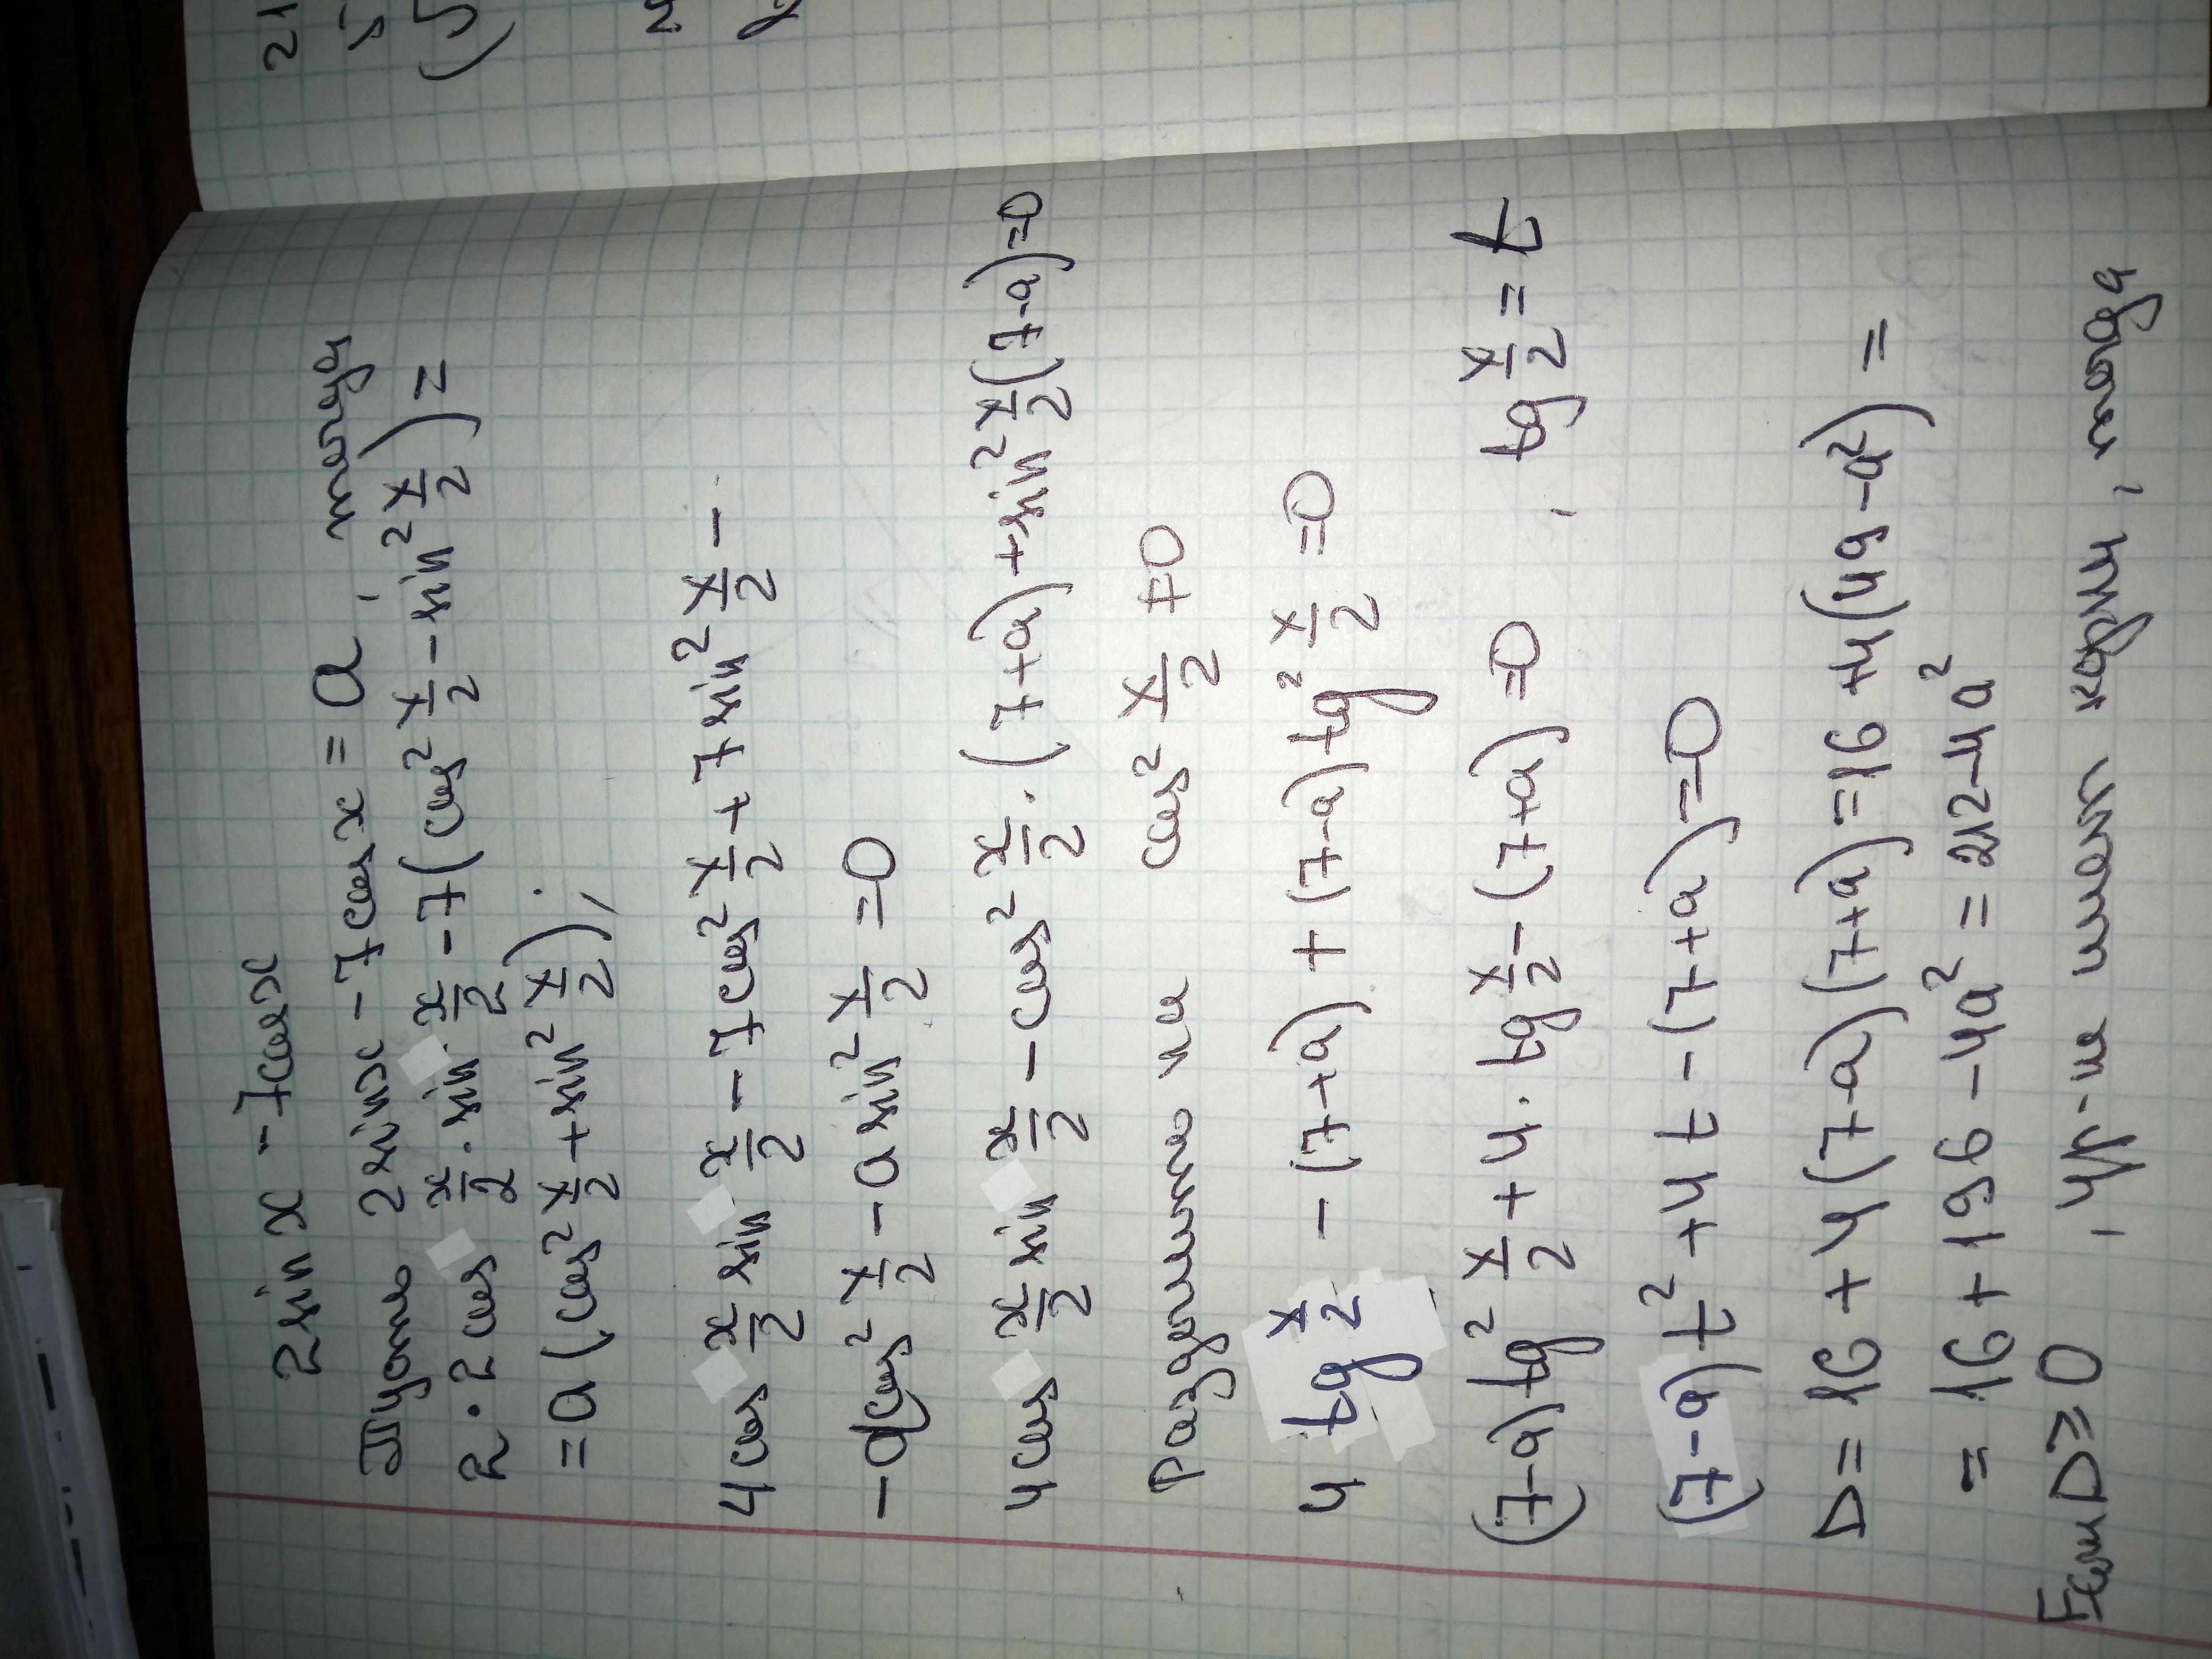 2sin x - 7cosx
Пусть 2sinx - 7cosx = a, тогда
2·2cos x/2 · sin x/2 - 7(cos² x/2 - sin² x/2) =
= a(cos² x/2 + sin² x/2);
4cos x/2 sin x/2 - 7cos² x/2 + 7sin² x/2 -
- a cos² x/2 - a sin² x/2 = 0
4cos x/2 sin x/2 - cos² x/2 · (7+a) + sin² x/2 (7-a) = 0
Разделишь на cos² x/2 ≠ 0
4 tg x/2 - (7+a) + (7-a) tg² x/2 = 0
(7-a) tg² x/2 + 4 · tg x/2 - (7+a) = 0, tg x/2 = t
(7-a)t² + 4t - (7+a) = 0
D = 16 + 4(7-a)(7+a) = 16 + 4(49 - a²) =
= 16 + 196 - 4a² = 212 - 4a²
Если D ≥ 0, ур-ие имеет корни, тогда
21
5
(5